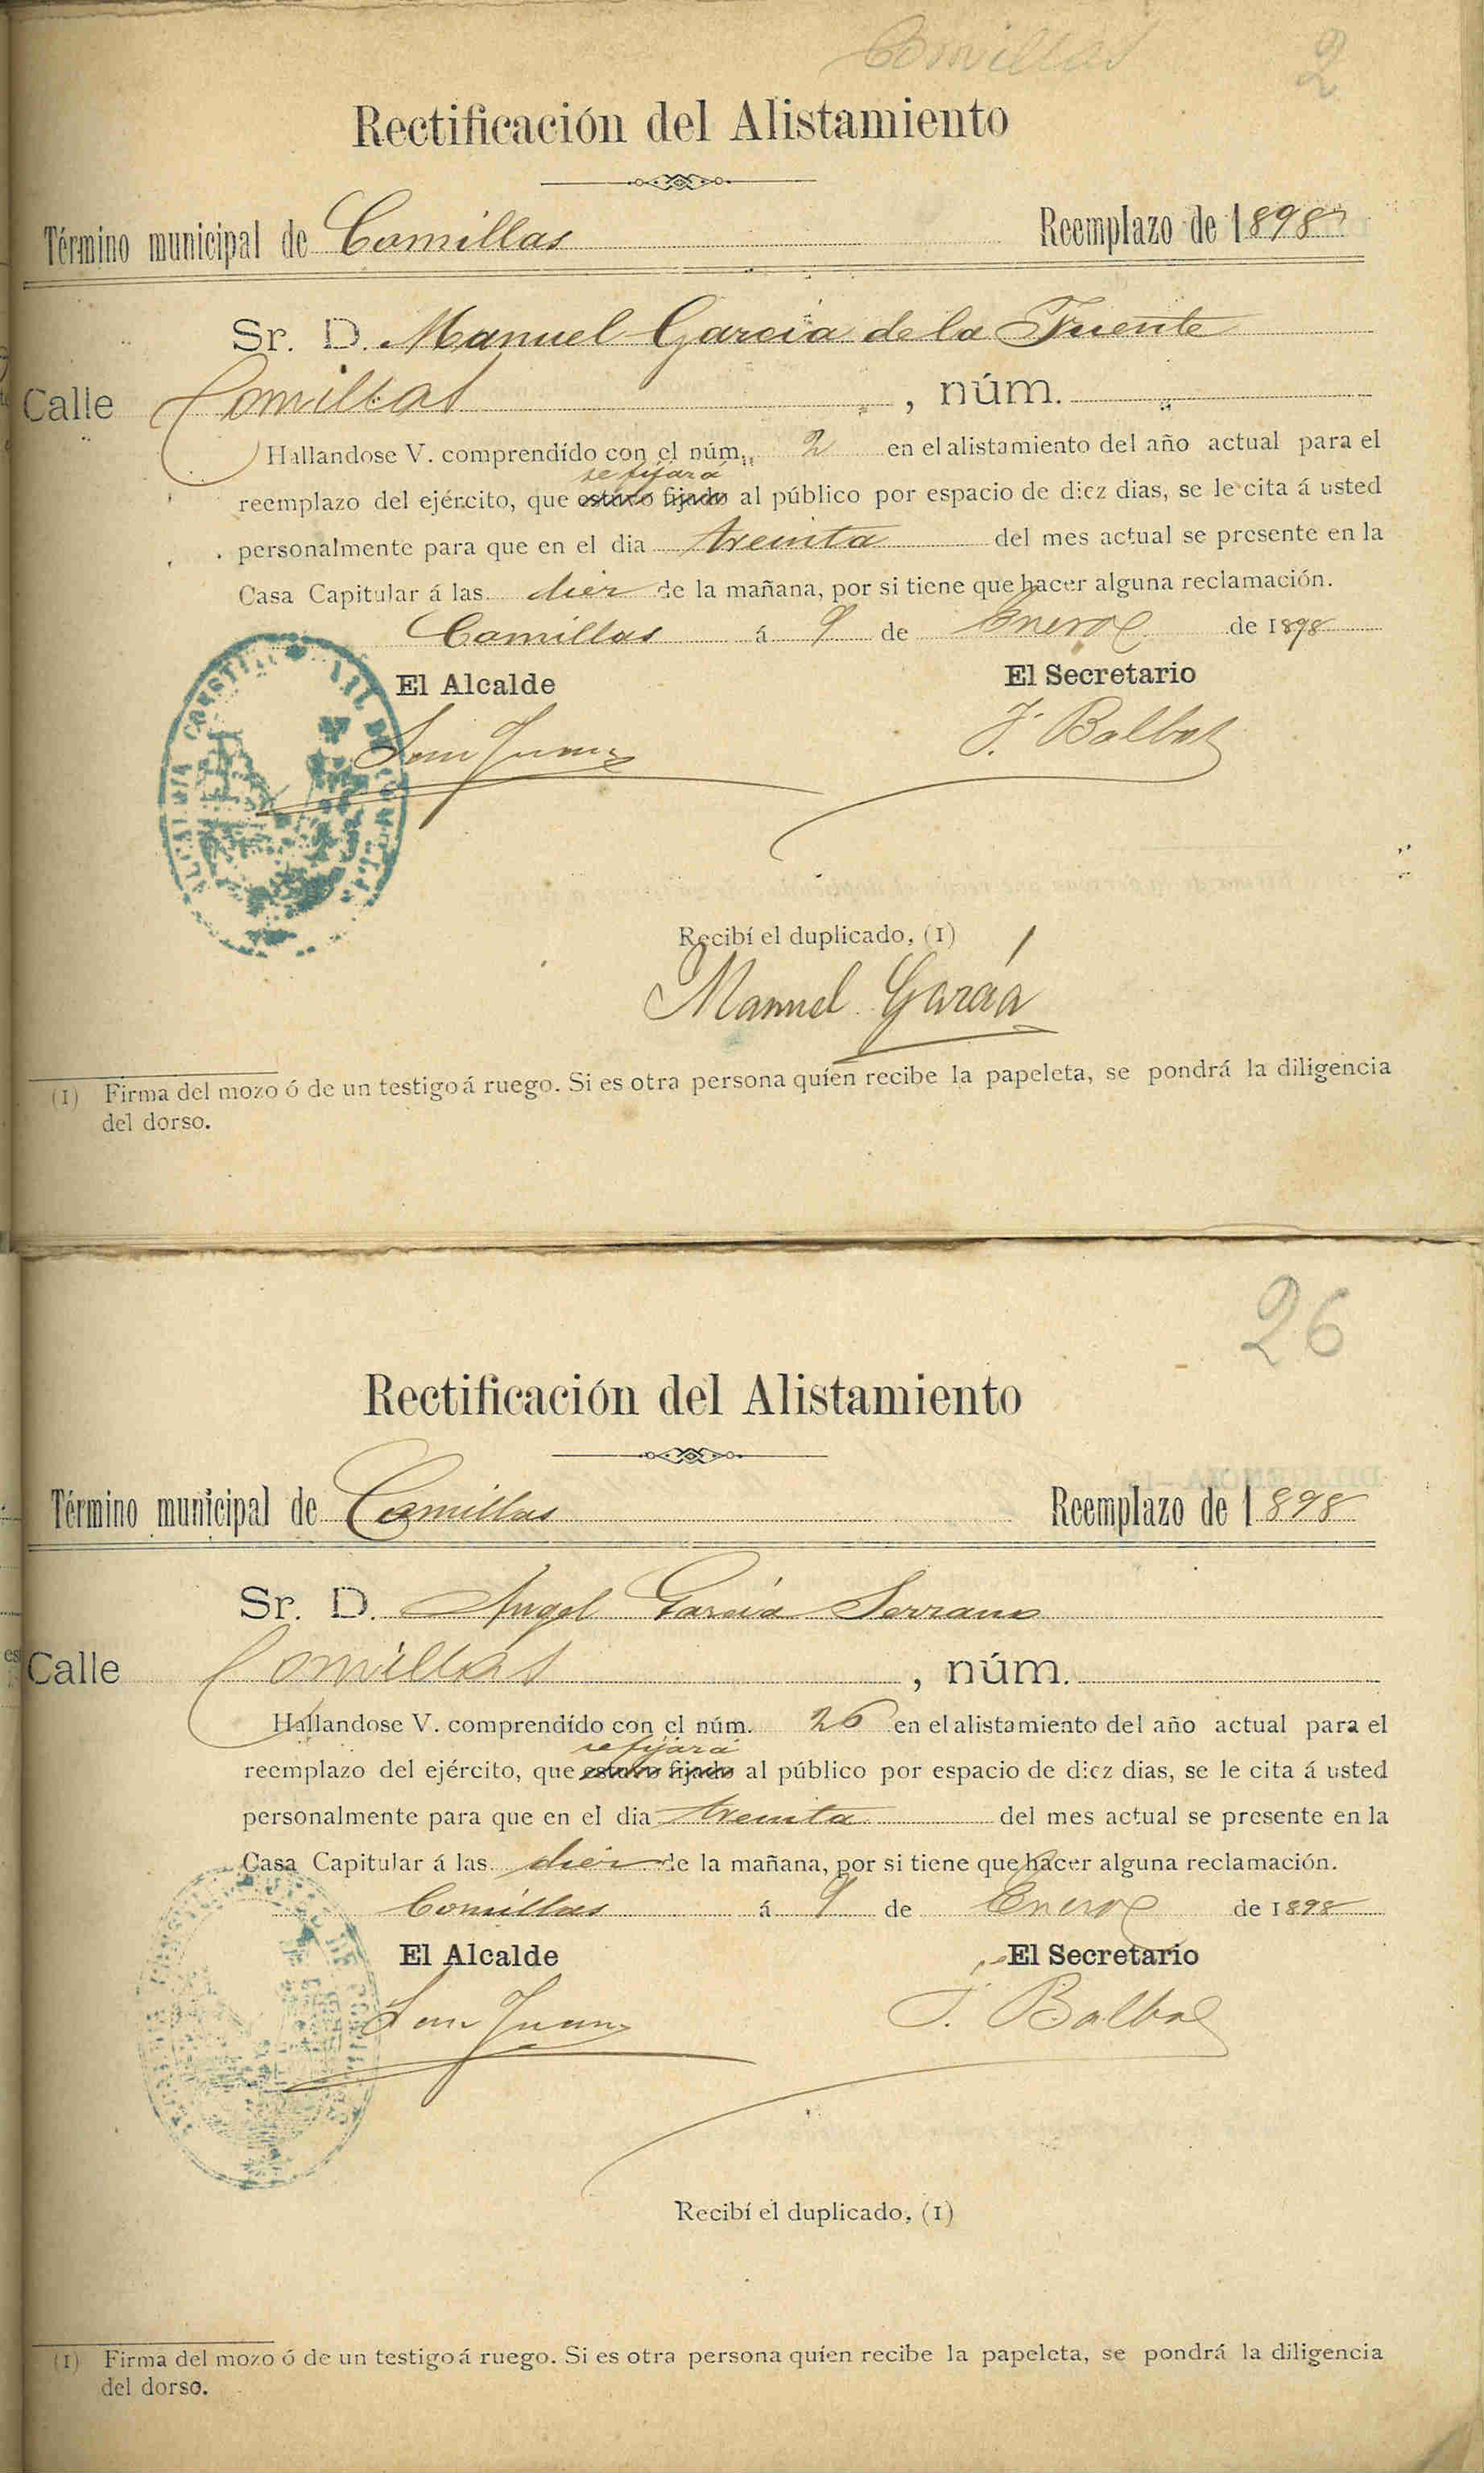 Comillas 2
Rectificación del Alistamiento
Término municipal de Comillas Reemplazo de 1898
Sr. D. Manuel Garcia de la Fuente
Calle Comillas , núm.
Hallandose V. comprendído con el núm. 2 en el alistamiento del año actual para el
se fijará
reemplazo del ejército, que estará fijado al público por espacio de diez dias, se le cita á usted
personalmente para que en el dia treinta del mes actual se presente en la
Casa Capitular á las diez de la mañana, por si tiene que hacer alguna reclamación.
Comillas á 9 de Enero de 1898
El Alcalde El Secretario
San Juan J. Balbas
Recibí el duplicado, (1)
Manuel García
(1) Firma del mozo ó de un testigo á ruego. Si es otra persona quíen recibe la papeleta, se pondrá la diligencia
del dorso.
26
Rectificación del Alistamiento
Término municipal de Comillas Reemplazo de 1898
Sr. D. Angel García Serrano
Calle Comillas , núm.
Hallandose V. comprendído con el núm. 26 en el alistamiento del año actual para el
se fijará
reemplazo del ejército, que estará fijado al público por espacio de diez dias, se le cita á usted
personalmente para que en el dia treinta del mes actual se presente en la
Casa Capitular á las diez de la mañana, por si tiene que hacer alguna reclamación.
Comillas á 9 de Enero de 1898
El Alcalde El Secretario
San Juan J. Balbas
Recibí el duplicado, (1)
(1) Firma del mozo ó de un testigo á ruego. Si es otra persona quíen recibe la papeleta, se pondrá la diligencia
del dorso.